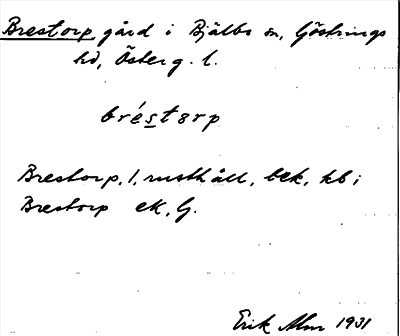 Brestorp, gård i Bjälbo sn, Göstrings
hd, Österg. l.
bréstorp
Brestorp, 1, rusthåll, bek, kb;
Brestorp ek, G.
Erik Alm 1931